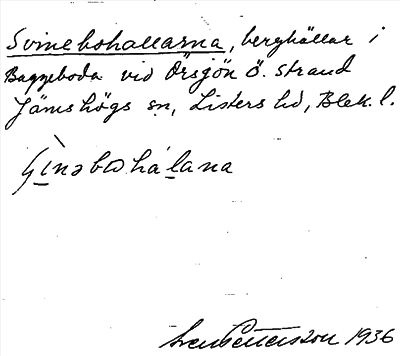 Svinebohallarna, berghällar i
Baggeboda vid Örsjön ö. strand
Jämshögs sn, Listers hd, Blek. l.
Sven Pettersson 1936